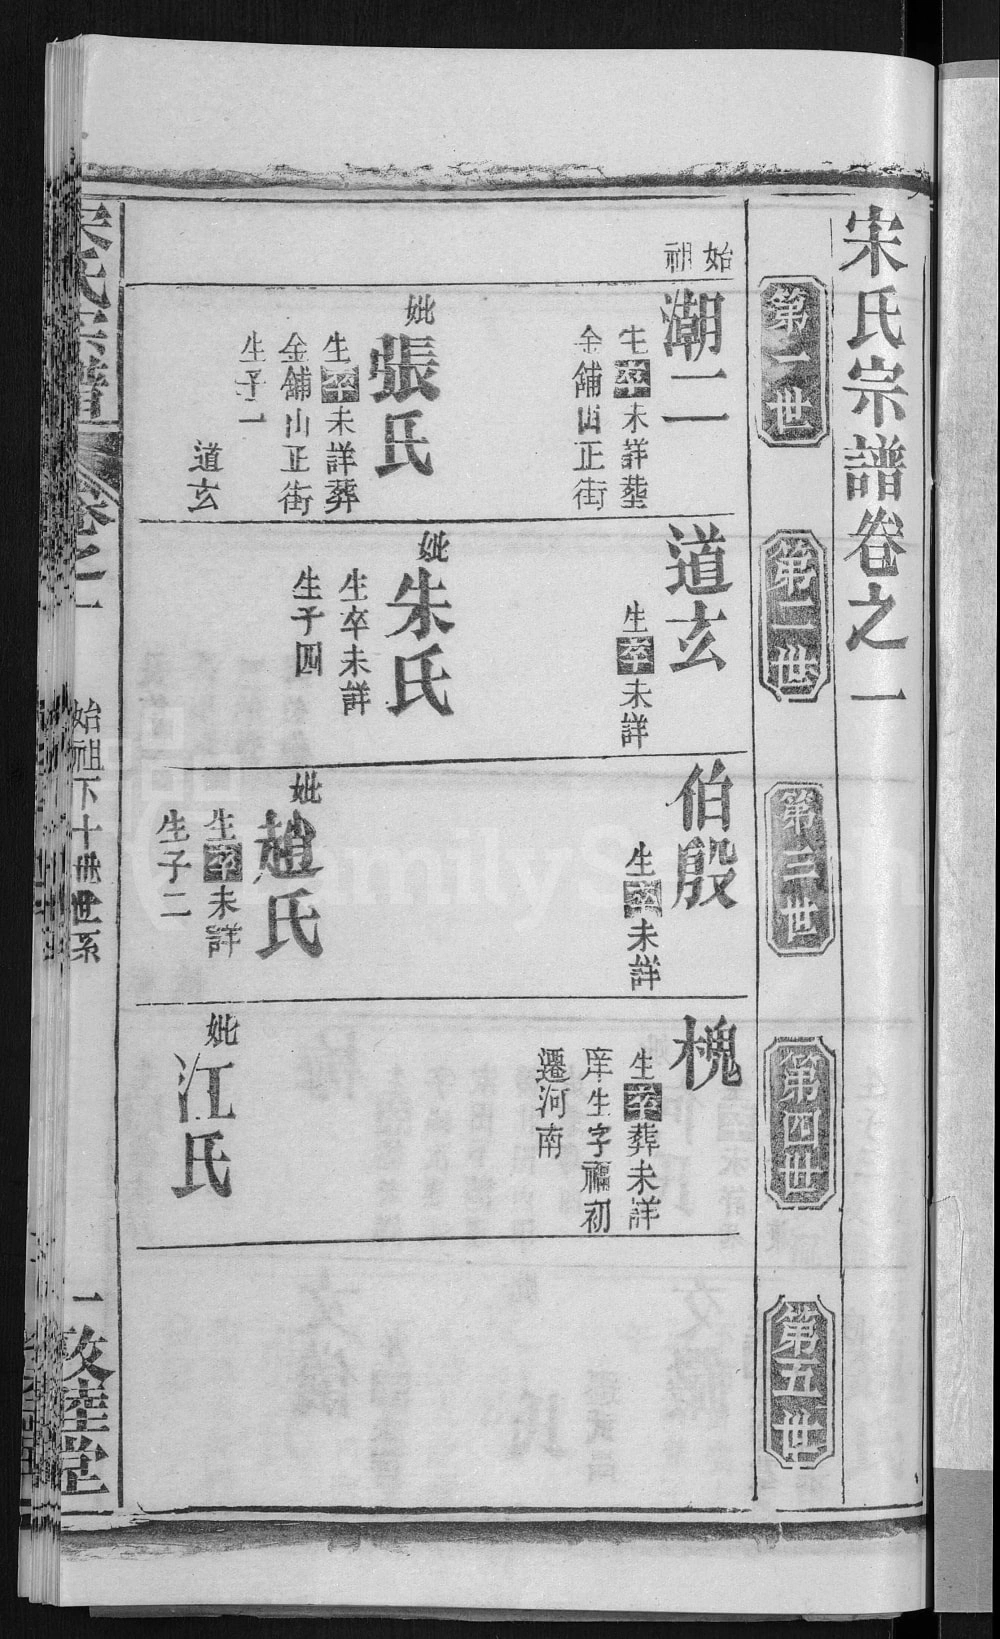 宋氏宗譜卷之一
第一世
第二世
第三世
第四世
第五世
始祖
潮二
生卒未詳塟
金鋪山正街
妣張氏
生卒未詳葬
金鋪山正街
生子一
道玄
道玄
生卒未詳
妣朱氏
生卒未詳
生子四
伯殷
生卒未詳
妣趙氏
生卒未詳
生子二
槐
生卒葬未詳
庠生字福初
遷河南
妣江氏
宋氏宗譜
卷之一
始祖下十世世系
一
敦睦堂